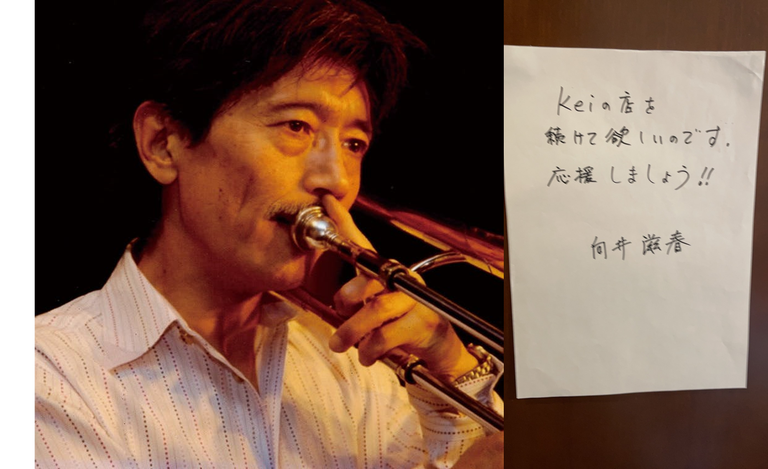 Keiの店を
続けて欲しいのです.
応援しましょう!!
向井滋春